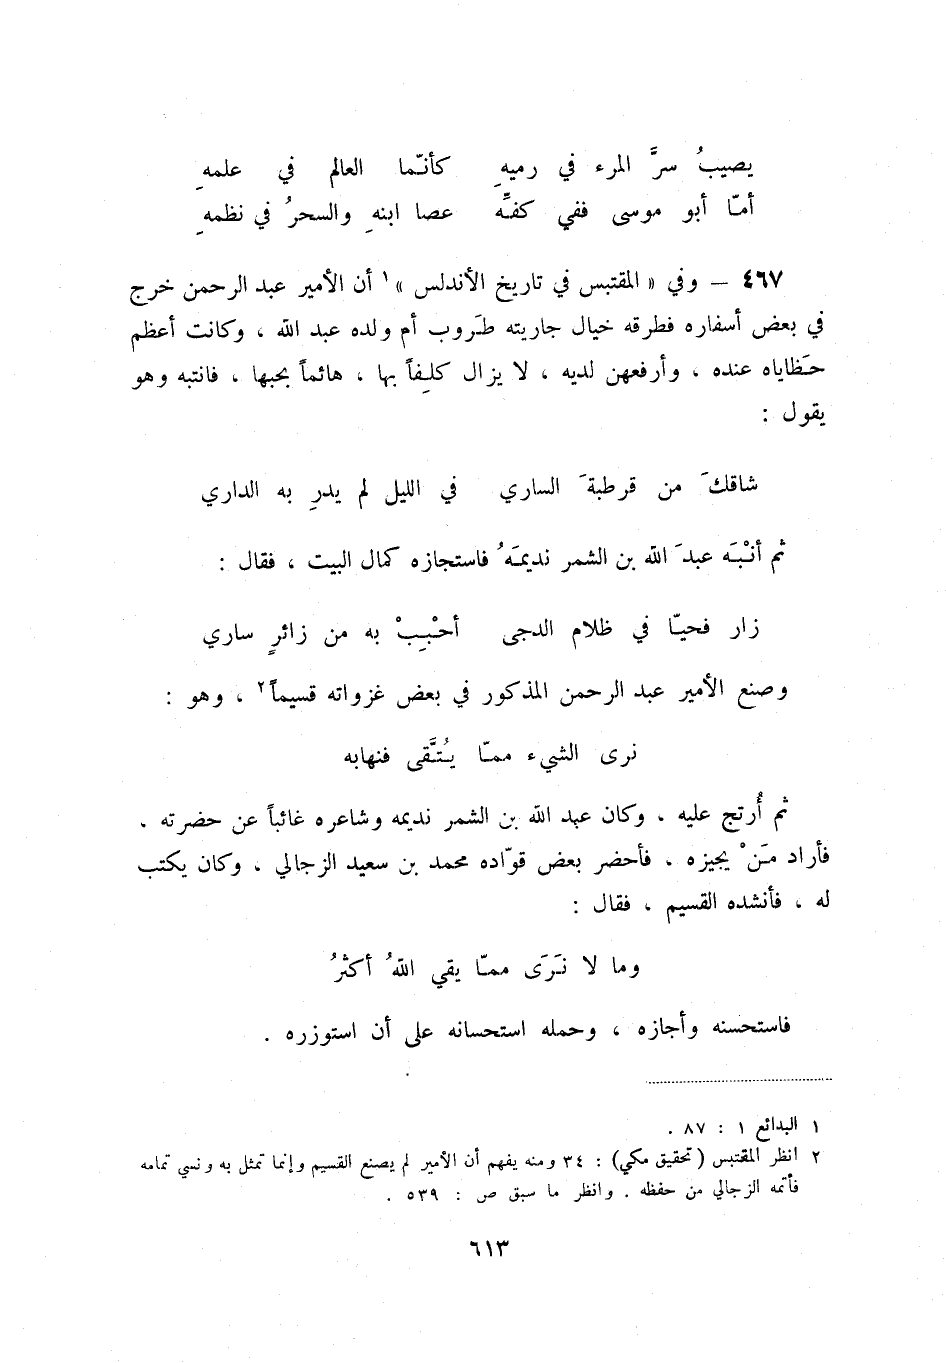 يصيبُ سرَّ المرء في رميهِ كأنّما العالم في علمهِ
أمّا أبو موسى ففي كفِّه عصا ابنهِ والسحرُ في نظمهِ
٤٦٧ – وفي « المقتبس في تاريخ الأندلس »١ أن الأمير عبد الرحمن خرج
في بعض أسفاره فطرقه خيال جاريته طَروب أم ولده عبد الله ، وكانت أعظم
حَظاياه عنده ، وأرفعهن لديه ، لا يزال كلِفاً بها ، هائماً بحبها ، فانتبه وهو
يقول :
شاقكَ من قرطبةَ الساري في الليل لم يدرِ به الداري
ثم أنْبَه عبدَ الله بن الشمر نديمَهُ فاستجازه كمال البيت ، فقال :
زار فحيّا في ظلام الدجى أحْبِبْ به من زائرٍ ساري
وصنع الأمير عبد الرحمن المذكور في بعض غزواته قسيماً٢ ، وهو :
نرى الشيء ممّا يُتَّقى فنهابه
ثم أُرتج عليه ، وكان عبد الله بن الشمر نديمه وشاعره غائباً عن حضرته ،
فأراد مَنْ يجيزه ، فأحضر بعض قوّاده محمد بن سعيد الزجالي ، وكان يكتب
له ، فأنشده القسيم ، فقال :
وما لا نَرَى ممّا يقي اللهُ أكثرُ
فاستحسنه وأجازه ، وحمله استحسانه على أن استوزره .
١ البدائع ١ : ٨٧ .
٢ انظر المقتبس (تحقيق مكي) : ٣٤ ومنه يفهم أن الأمير لم يصنع القسيم وإنما تمثل به ونسي تمامه
فأتمه الزجالي من حفظه . وانظر ما سبق ص : ٥٣٩ .
٦١٣